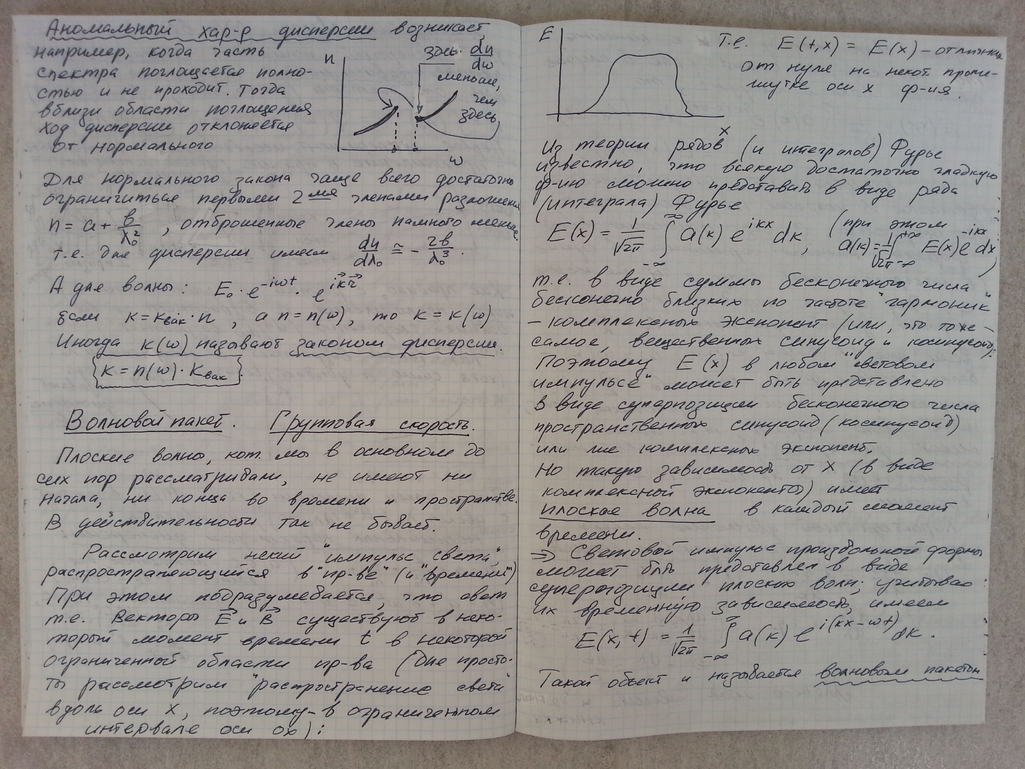 Аномальный хар-р дисперсии возникает,
например, когда часть
спектра поглощается полно-
стью и не проходит. Тогда
вблизи области поглощения
ход дисперсии отклоняется
от нормального
n
здесь dn/dω
меньше,
чем
здесь
ω
Для нормального закона чаще всего достаточно
ограничиться первыми 2мя членами разложения
n = a + b/λ₀², отброшенные члены намного меньше,
т.е. для дисперсии имеем dn/dλ₀ ≅ - 2b/λ₀³.
А для волны: E₀ · e^{-iωt} · e^{i\vec{k}\vec{r}}
Если k = kвак · n, а n = n(ω), то k = k(ω)
Иногда k(ω) называют законом дисперсии.
{k = n(ω) · kвак}
Волновой пакет. Групповая скорость.
Плоские волны, кот. мы в основном до
сих пор рассматривали, не имеют ни
начала, ни конца во времени и пространстве.
В действительности так не бывает.
Рассмотрим некий "импульс света",
распространяющийся в "пр-ве" (и "времени")
При этом подразумевается, что свет
т.е. векторы \vec{E} и \vec{B} существуют в неко-
торый момент времени t в некоторой
ограниченной области пр-ва (для просто-
ты рассмотрим "распространение света"
вдоль оси X, поэтому - в ограниченном
интервале оси ох):
E
x
т.е. E(t,x) = E(x) - отличная
от нуля на некот. проме-
жутке оси x ф-ия.
Из теории рядов (и интегралов) Фурье
известно, что всякую достаточно гладкую
ф-ию можно представить в виде ряда
(интеграла) Фурье
E(x) = 1/√2π ∫_{-∞}^{∞} a(k) e^{ikx} dk, (при этом
a(k) = 1/√2π ∫_{-∞}^{+∞} E(x) e^{-ikx} dx)
т.е. в виде суммы бесконечного числа
бесконечно близких по частоте "гармоник"
- комплексных экспонент (или, что то же
самое, вещественных синусоид и косинусоид).
Поэтому E(x) в любом "световом
импульсе" может быть представлено
в виде суперпозиции бесконечного числа
пространственных синусоид (косинусоид)
или же комплексных экспонент.
Но такую зависимость от X (в виде
комплексной экспоненты) имеет
плоская волна в каждый момент
времени.
⇒ Световой импульс произвольной формы
может быть представлен в виде
суперпозиции плоских волн; учитывая
их временную зависимость, имеем
E(x,t) = 1/√2π ∫_{-∞}^{∞} a(k) e^{i(kx-ωt)} dk.
Такой объект и называется волновым пакетом